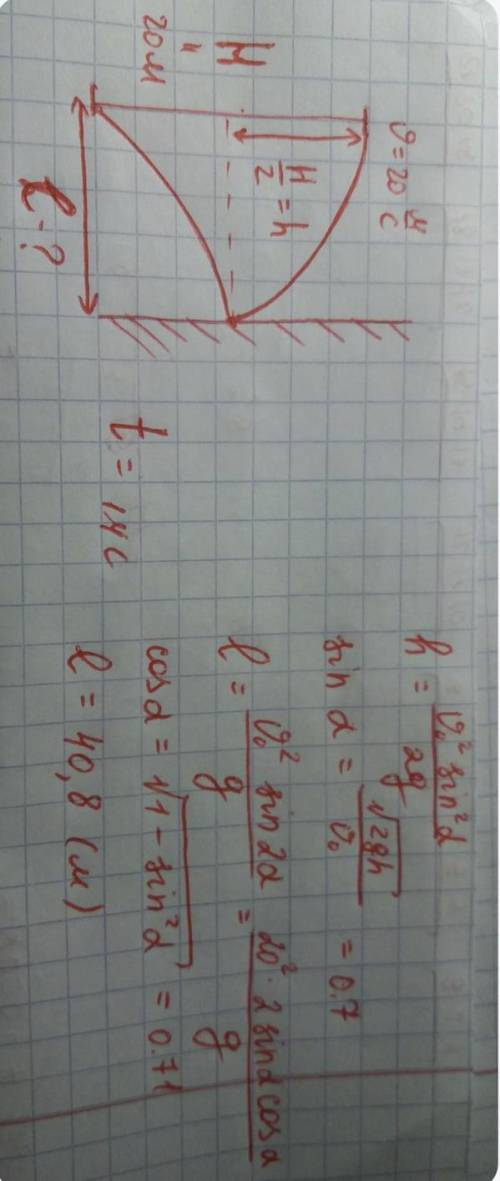 ϑ = 20 м/с
H/2 = h
H
"
20м
l - ?
t = 1,4 с
h = ϑ₀² sin²α / 2g
sin α = √2gh / ϑ₀ = 0.7
l = ϑ₀² sin 2α / g = 20² · 2 sinα cosα / g
cosα = √1 - sin²α = 0.71
l = 40,8 (м)